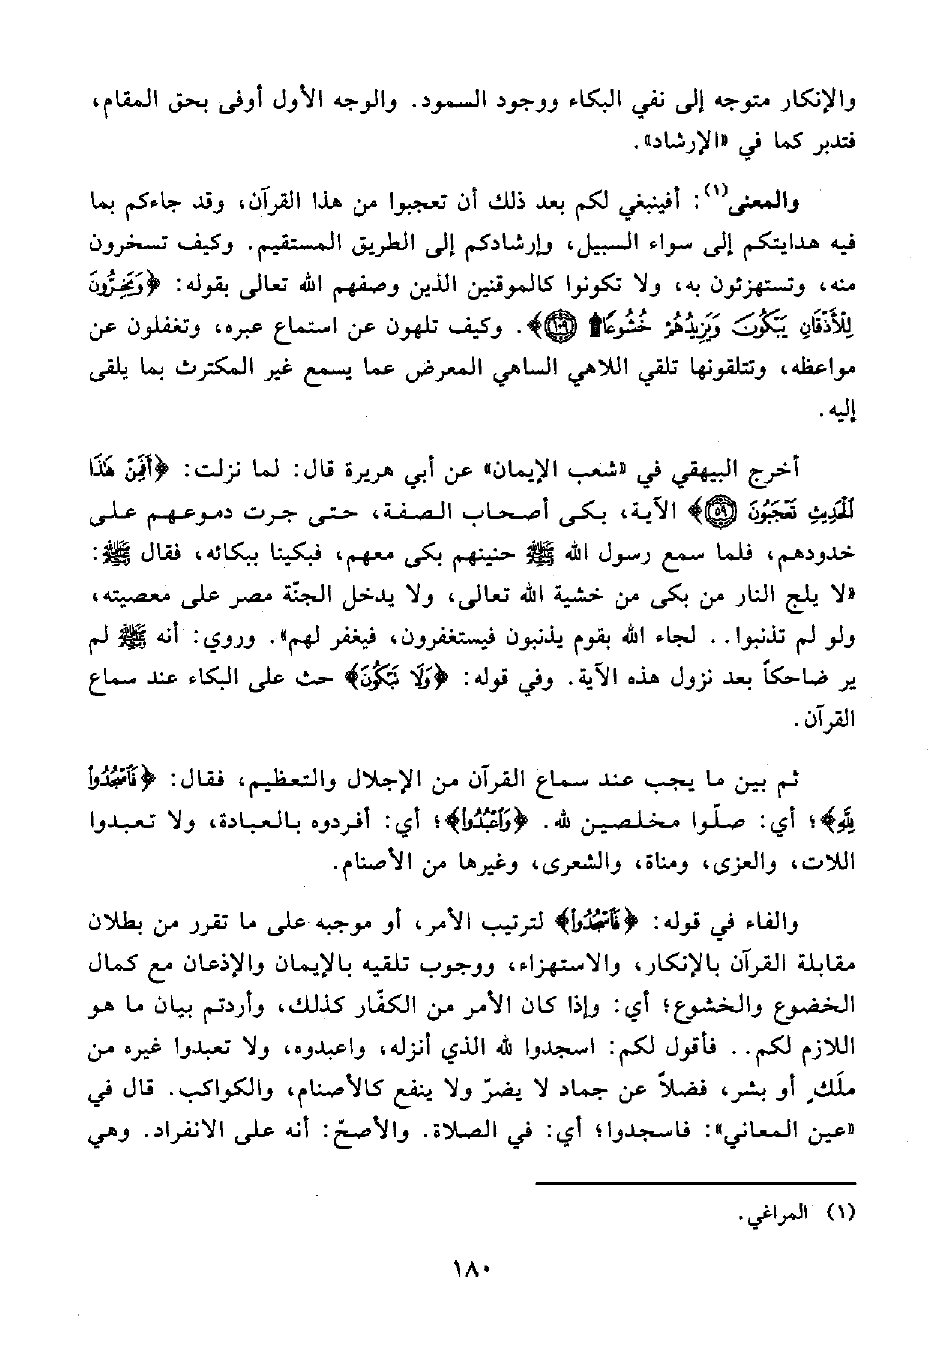 والإنكار متوجه إلى نفي البكاء ووجود السمود. والوجه الأول أوفى بحق المقام،
فتدبر كما في «الإرشاد».
والمعنى(١): أفينبغي لكم بعد ذلك أن تعجبوا من هذا القرآن، وقد جاءكم بما
فيه هدايتكم إلى سواء السبيل، وإرشادكم إلى الطريق المستقيم. وكيف تسخرون
منه، وتستهزئون به، ولا تكونوا كالموقنين الذين وصفهم الله تعالى بقوله: ﴿وَيَخِرُّونَ
لِلْأَذْقَانِ يَبْكُونَ وَيَزِيدُهُمْ خُشُوعًا۩ ١٠٩﴾. وكيف تلهون عن استماع عبره، وتغفلون عن
مواعظه، وتتلقونها تلقي اللاهي الساهي المعرض عما يسمع غير المكترث بما يلقى
إليه.
أخرج البيهقي في «شعب الإيمان» عن أبي هريرة قال: لما نزلت: ﴿أَفَمِنْ هَٰذَا
الْحَدِيثِ تَعْجَبُونَ ٥٩﴾ الآية، بكى أصحاب الصفة، حتى جرت دموعهم على
خدودهم، فلما سمع رسول الله ﷺ حنينهم بكى معهم، فبكينا ببكائه، فقال ﷺ:
«لا يلج النار من بكى من خشية الله تعالى، ولا يدخل الجنّة مصر على معصيته،
ولو لم تذنبوا.. لجاء الله بقوم يذنبون فيستغفرون، فيغفر لهم». وروي: أنه ﷺ لم
ير ضاحكاً بعد نزول هذه الآية. وفي قوله: ﴿وَلَا تَبْكُونَ﴾ حث على البكاء عند سماع
القرآن.
ثم بين ما يجب عند سماع القرآن من الإجلال والتعظيم، فقال: ﴿فَاسْجُدُوا
لِلَّهِ﴾؛ أي: صلّوا مخلصين لله. ﴿وَاعْبُدُوا﴾؛ أي: أفردوه بالعبادة، ولا تعبدوا
اللات، والعزى، ومناة، والشعرى، وغيرها من الأصنام.
والفاء في قوله: ﴿فَاسْجُدُوا﴾ لترتيب الأمر، أو موجبه على ما تقرر من بطلان
مقابلة القرآن بالإنكار، والاستهزاء، ووجوب تلقيه بالإيمان والإذعان مع كمال
الخضوع والخشوع؛ أي: وإذا كان الأمر من الكفّار كذلك، وأردتم بيان ما هو
اللازم لكم.. فأقول لكم: اسجدوا لله الذي أنزله، واعبدوه، ولا تعبدوا غيره من
ملَكٍ أو بشر، فضلاً عن جماد لا يضرّ ولا ينفع كالأصنام، والكواكب. قال في
«عين المعاني»: فاسجدوا؛ أي: في الصلاة. والأصحّ: أنه على الانفراد. وهي
(١) المراغي.
١٨٠